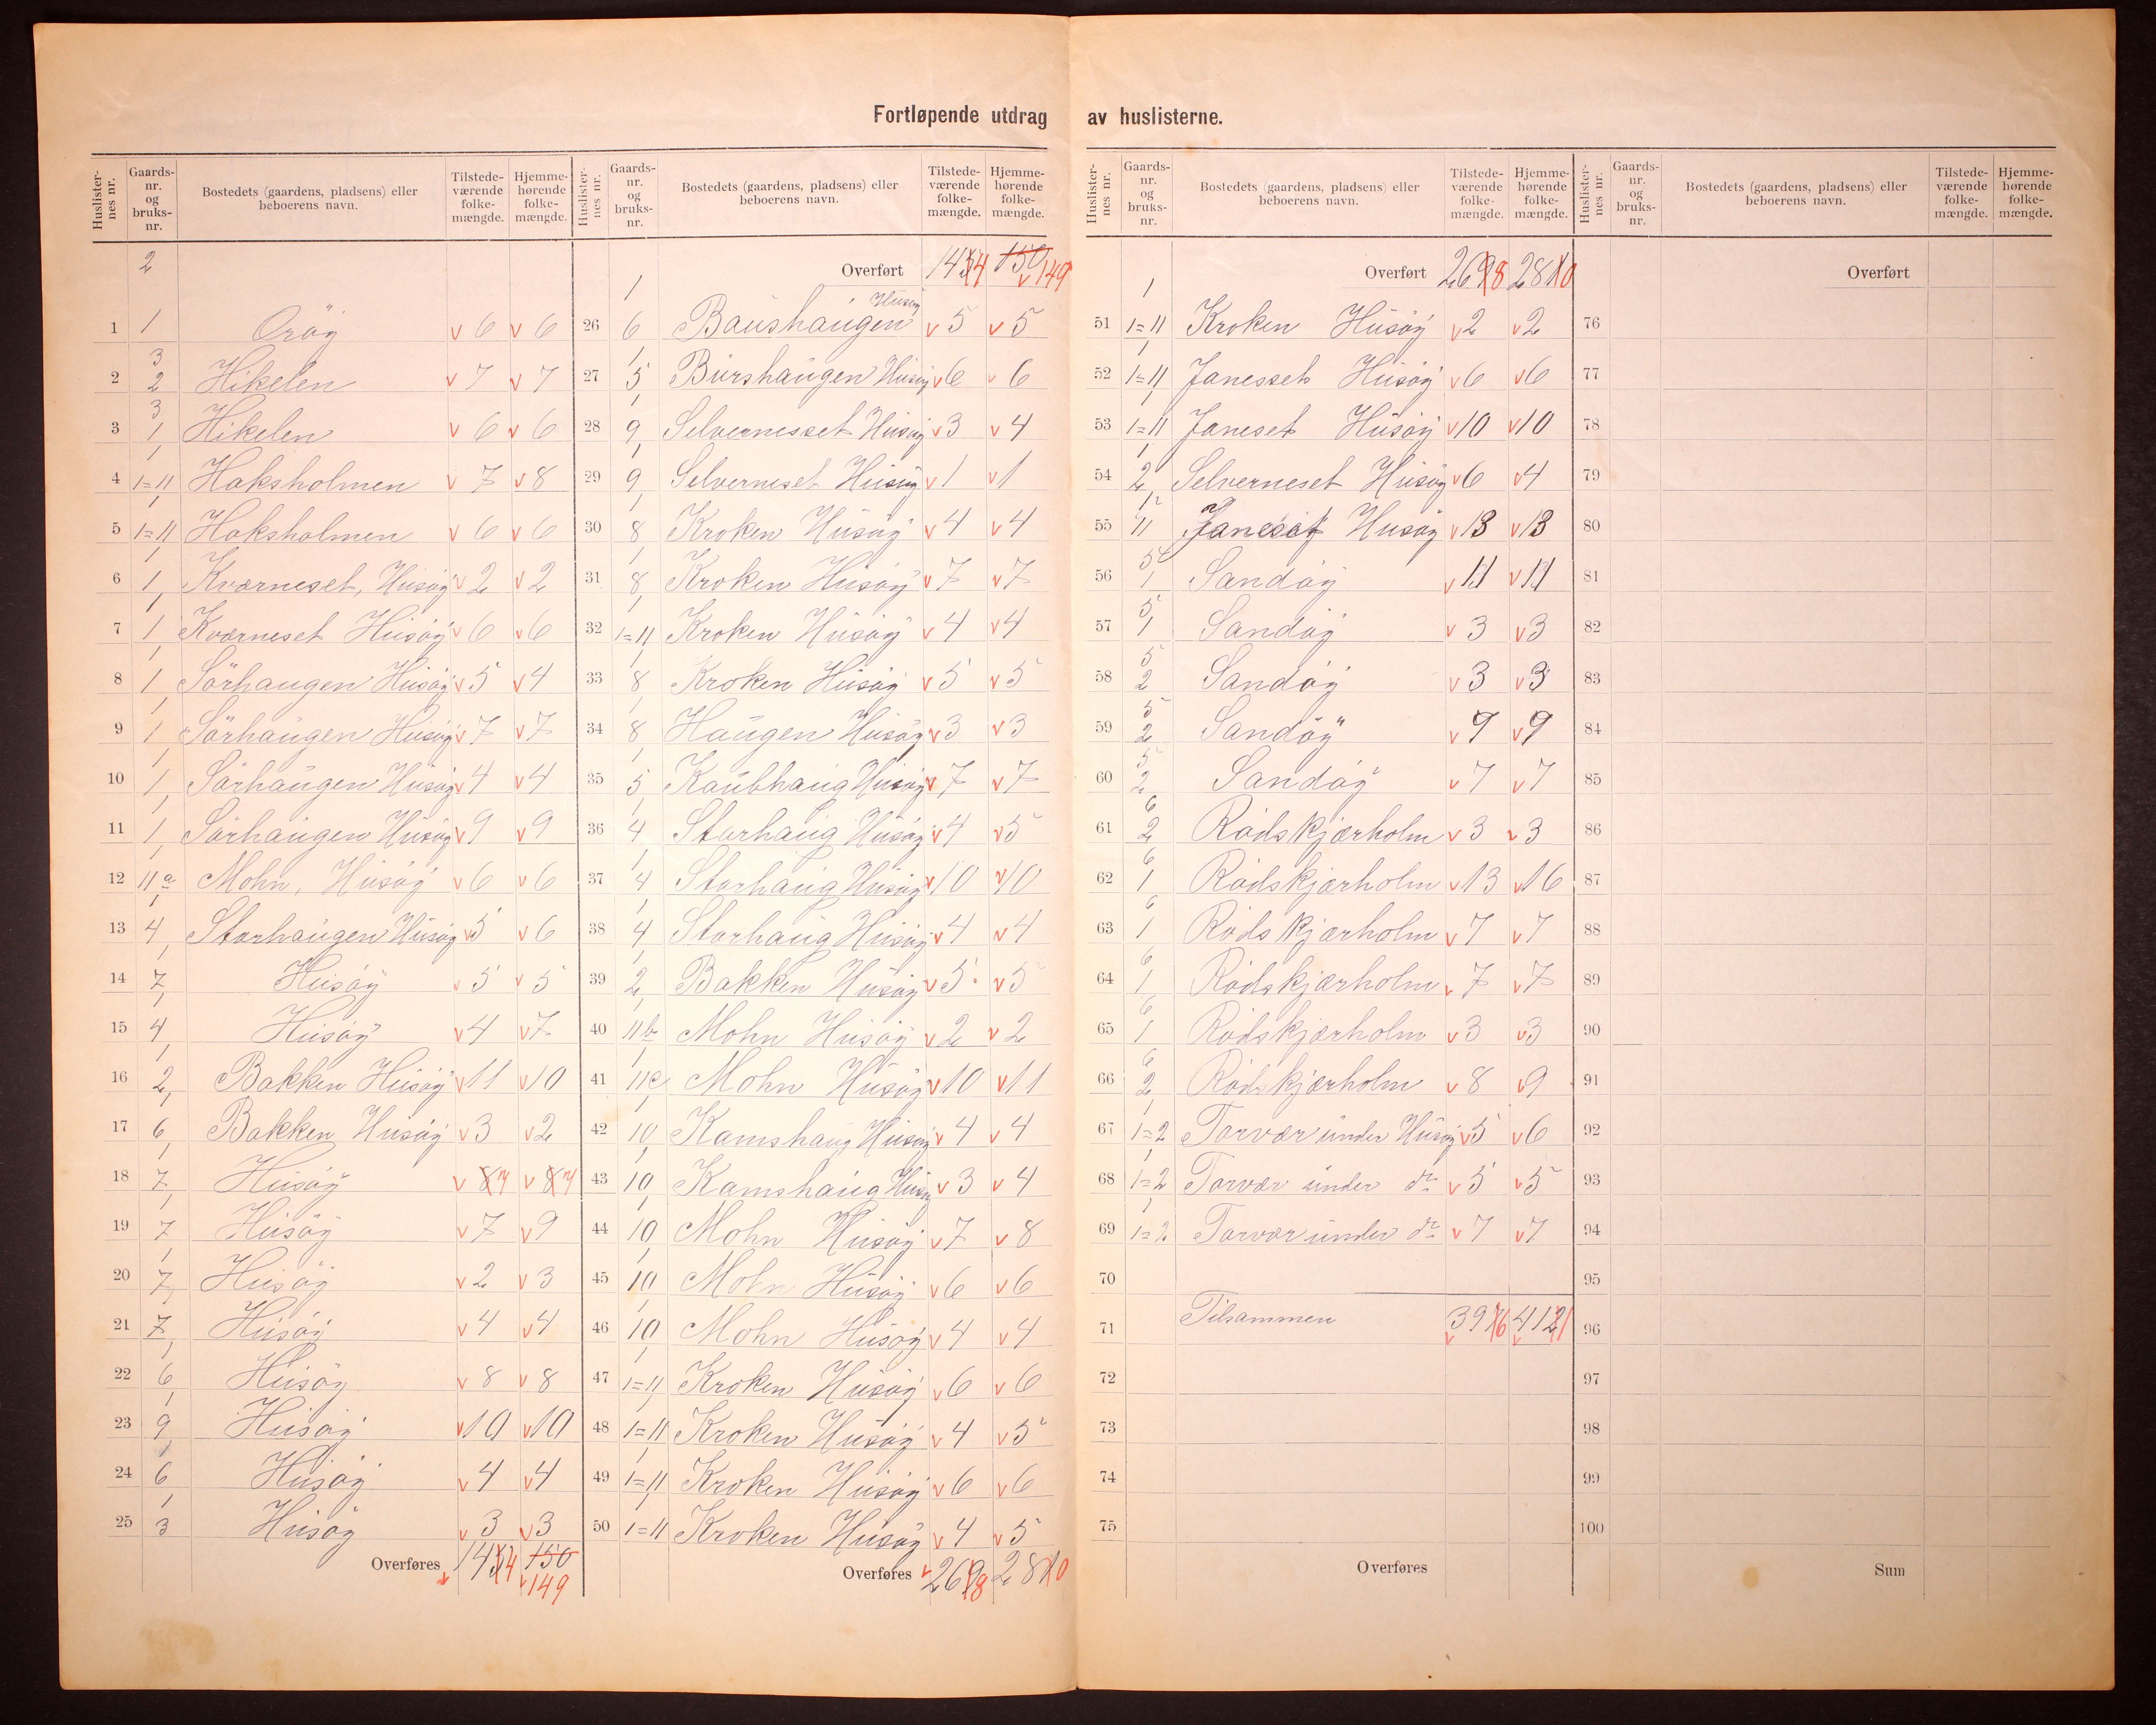 Fortløpende utdrag av huslisterne.
Huslister-nes nr. Gaards-nr. og bruks-nr. Bostedets (gaardens, pladsens) eller beboerens navn. Tilstede-værende folke-mængde. Hjemme-hørende folke-mængde.
2
1 1 Orøy 6 6
2 3/2 Hikelen 7 7
3 3/1 Hikelen 6 6
4 1/1=11 Haksholmen 7 8
5 1/1=11 Haksholmen 6 6
6 1/1 Kværneset, Husøy 2 2
7 1/1 Kværneset Husøy 6 6
8 1/1 Sörhaugen Husøy 5 4
9 1/1 Sörhaugen Husøy 7 7
10 1/1 Sörhaugen Husøy 4 4
11 1/1 Sörhaugen Husøy 9 9
12 1/11a Mohn, Husøy 6 6
13 1/4 Storhaugen Husøy 5 6
14 1/7 Husøy 5 5
15 1/4 Husøy 4 7
16 1/2 Bakken Husøy 11 10
17 1/6 Bakken Husøy 3 2
18 1/7 Husøy 8 7 8 7
19 1/7 Husøy 7 9
20 1/7 Husøy 2 3
21 1/7 Husøy 4 4
22 1/6 Husøy 8 8
23 1/9 Husøy 10 10
24 1/6 Husøy 4 4
25 1/3 Husøy 3 3
Overføres 145 4 150 149
Huslister-nes nr. Gaards-nr. og bruks-nr. Bostedets (gaardens, pladsens) eller beboerens navn. Tilstede-værende folke-mængde. Hjemme-hørende folke-mængde.
Overført 145 4 150 149
26 1/6 Baushaugen Husøy 5 5
27 1/5 Burshaugen Husøy 6 6
28 1/9 Selvernesset Husøy 3 4
29 1/9 Selverneset Husøy 1 1
30 1/8 Kroken Husøy 4 4
31 1/8 Kroken Husøy 7 7
32 1/1=11 Kroken Husøy 4 4
33 1/8 Kroken Husøy 5 5
34 1/8 Haugen Husøy 3 3
35 1/5 Kaubhaug Husøy 7 7
36 1/4 Storhaug Husøy 4 5
37 1/4 Storhaug Husøy 10 10
38 1/4 Storhaug Husøy 4 4
39 1/2 Bakken Husøy 5 5
40 1/11b Mohn Husøy 2 2
41 1/11c Mohn Husøy 10 11
42 1/10 Kamshaug Husøy 4 4
43 1/10 Kamshaug Husøy 3 4
44 1/10 Mohn Husøy 7 8
45 1/10 Mohn Husøy 6 6
46 1/10 Mohn Husøy 4 4
47 1/1=11 Kroken Husøy 6 6
48 1/1=11 Kroken Husøy 4 5
49 1/1=11 Kroken Husøy 6 6
50 1/1=11 Kroken Husøy 4 5
Overføres 269 8 281 0
Huslister-nes nr. Gaards-nr. og bruks-nr. Bostedets (gaardens, pladsens) eller beboerens navn. Tilstede-værende folke-mængde. Hjemme-hørende folke-mængde.
Overført 269 8 281 0
51 1/1=11 Kroken Husøy 2 2
52 1/1=11 Janesset Husøy 6 6
53 1/1=11 Janeset Husøy 10 10
54 1/2 Selverneset Husøy 6 4
55 1/11 Janeset Husøy 13 13
56 5/1 Sandøy 11 11
57 5/1 Sandøy 3 3
58 5/2 Sandøy 3 3
59 5/2 Sandøy 9 9
60 5/2 Sandøy 7 7
61 6/2 Rødskjærholm 3 3
62 6/1 Rødskjærholm 13 16
63 6/1 Rødskjærholm 7 7
64 6/1 Rødskjærholm 7 7
65 6/1 Rødskjærholm 3 3
66 6/2 Rødskjærholm 8 9
67 1/1=2 Torvær under Husøy 5 6
68 1/1=2 Torvær under do 5 5
69 1/1=2 Torvær under do 7 7
70
71 Tilsammen 397 6 412 1
72
73
74
75
Overføres
Huslister-nes nr. Gaards-nr. og bruks-nr. Bostedets (gaardens, pladsens) eller beboerens navn. Tilstede-værende folke-mængde. Hjemme-hørende folke-mængde.
Overført
76
77
78
79
80
81
82
83
84
85
86
87
88
89
90
91
92
93
94
95
96
97
98
99
100
Sum